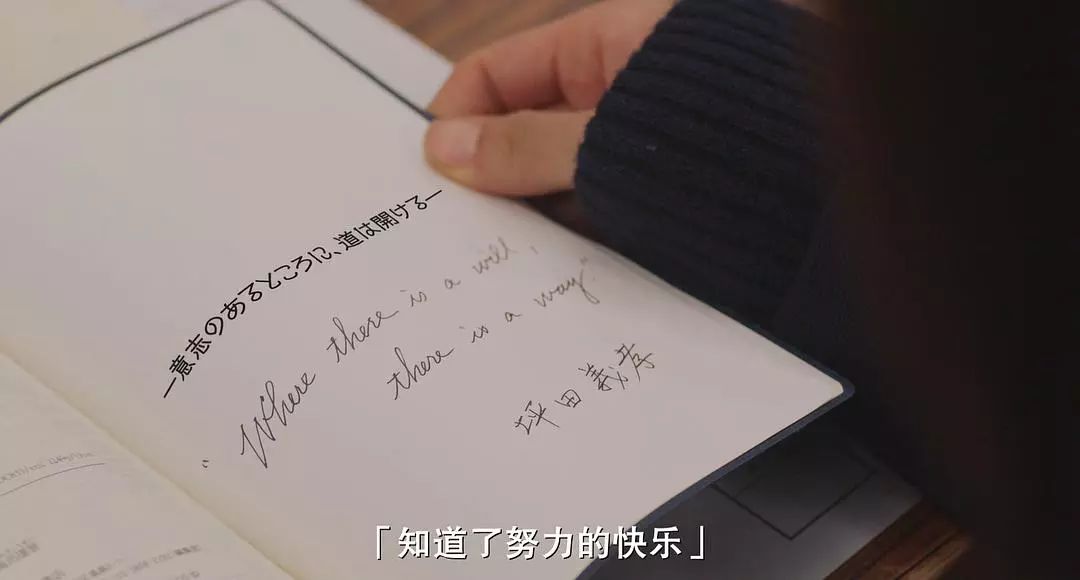 ―意志のあるところに、道は開ける―
“Where there is a will,
there is a way.”
坪田義孝
「知道了努力的快乐」